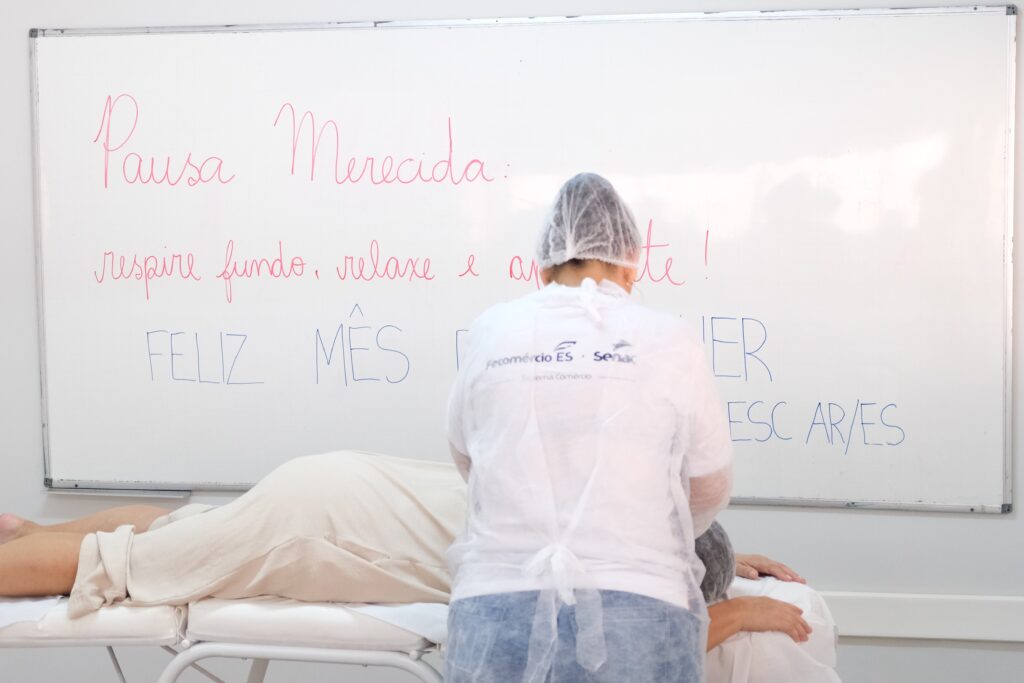 Pausa Merecida:
respire fundo, relaxe e
!
FELIZ MÊS
ESC AR/ES
Fecomércio ES · Senac
Sistema Comércio